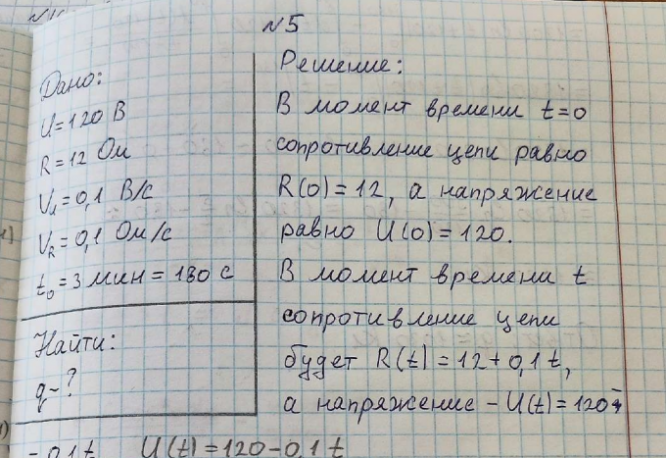 №5
Дано:
U=120 В
R=12 Ом
V₁=0,1 В/с
V_R=0,1 Ом/с
t₀=3 мин=180 с
Найти:
q-?
Решение:
В момент времени t=0
сопротивление цепи равно
R(0)=12, а напряжение
равно U(0)=120.
В момент времени t
сопротивление цепи
будет R(t)=12+0,1t,
а напряжение - U(t)=120-
-0,1t U(t)=120-0,1t